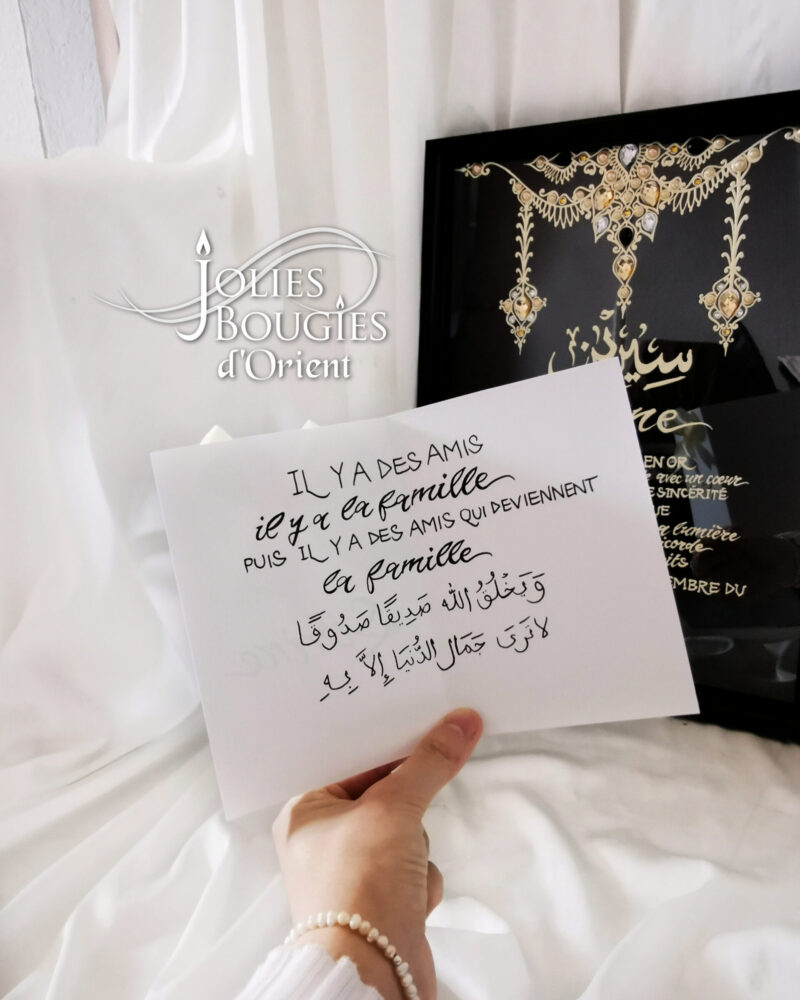 JOLIES
BOUGIES
d'Orient
IL Y A DES AMIS
il y a la famille
PUIS IL Y A DES AMIS QUI DEVIENNENT
la famille
وَيَخْلُقُ اللّٰه صَدِيقًا صَدُوقًا
لا تَرَى جَمَال الدُّنيَا إِلَّا بِهِ
سيرين
EN OR
avec un coeur
SINCÉRITÉ
lumière
EMBRE DU